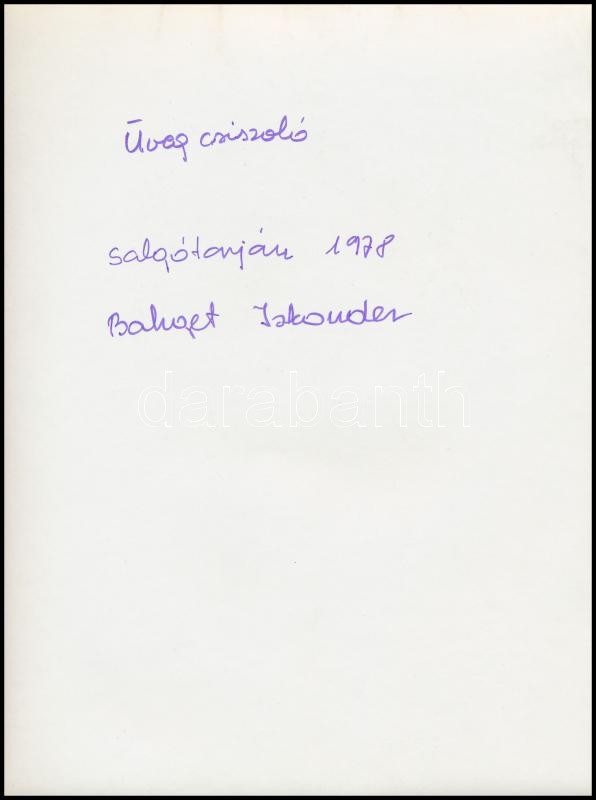 Üveg csiszoló
Salgótarján 1978
Bahget Iskander
darabanth